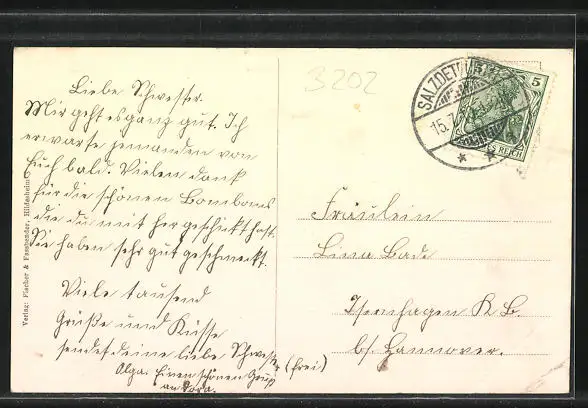 3202
Liebe Schwester.
Mir geht es ganz gut. Ich
erwarte jemanden von
Euch bald. Vielen dank
für die schönen Bombons
die du mit her geschickt hast.
Sie haben sehr gut geschmeckt.
Viele tausend
Grüße und Küsse
sendet deine liebe Schwester
Olga. Einen schönen Gruß
an Dora.
(frei)
SALZDETFURTH
15.7.
5
DEUTSCHES REICH
Fräulein
Lina Bade
Isenhagen K. B.
b/. Hannover.
Verlag: Fischer & Fassbender, Hildesheim